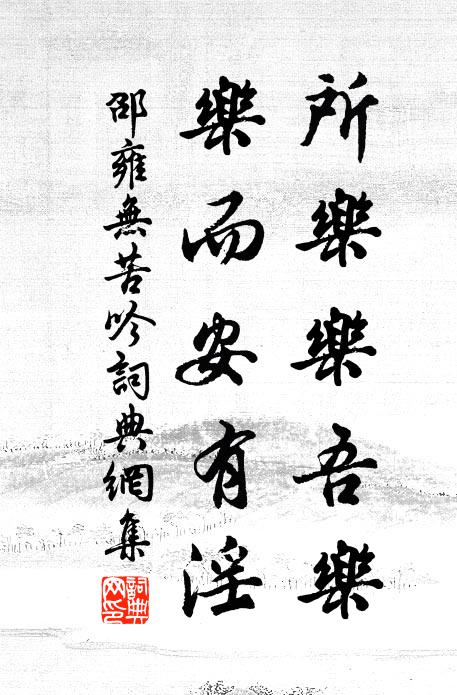 所樂樂吾樂
樂而安有淫
邵雍無苦吟詞典網集
詞典网印